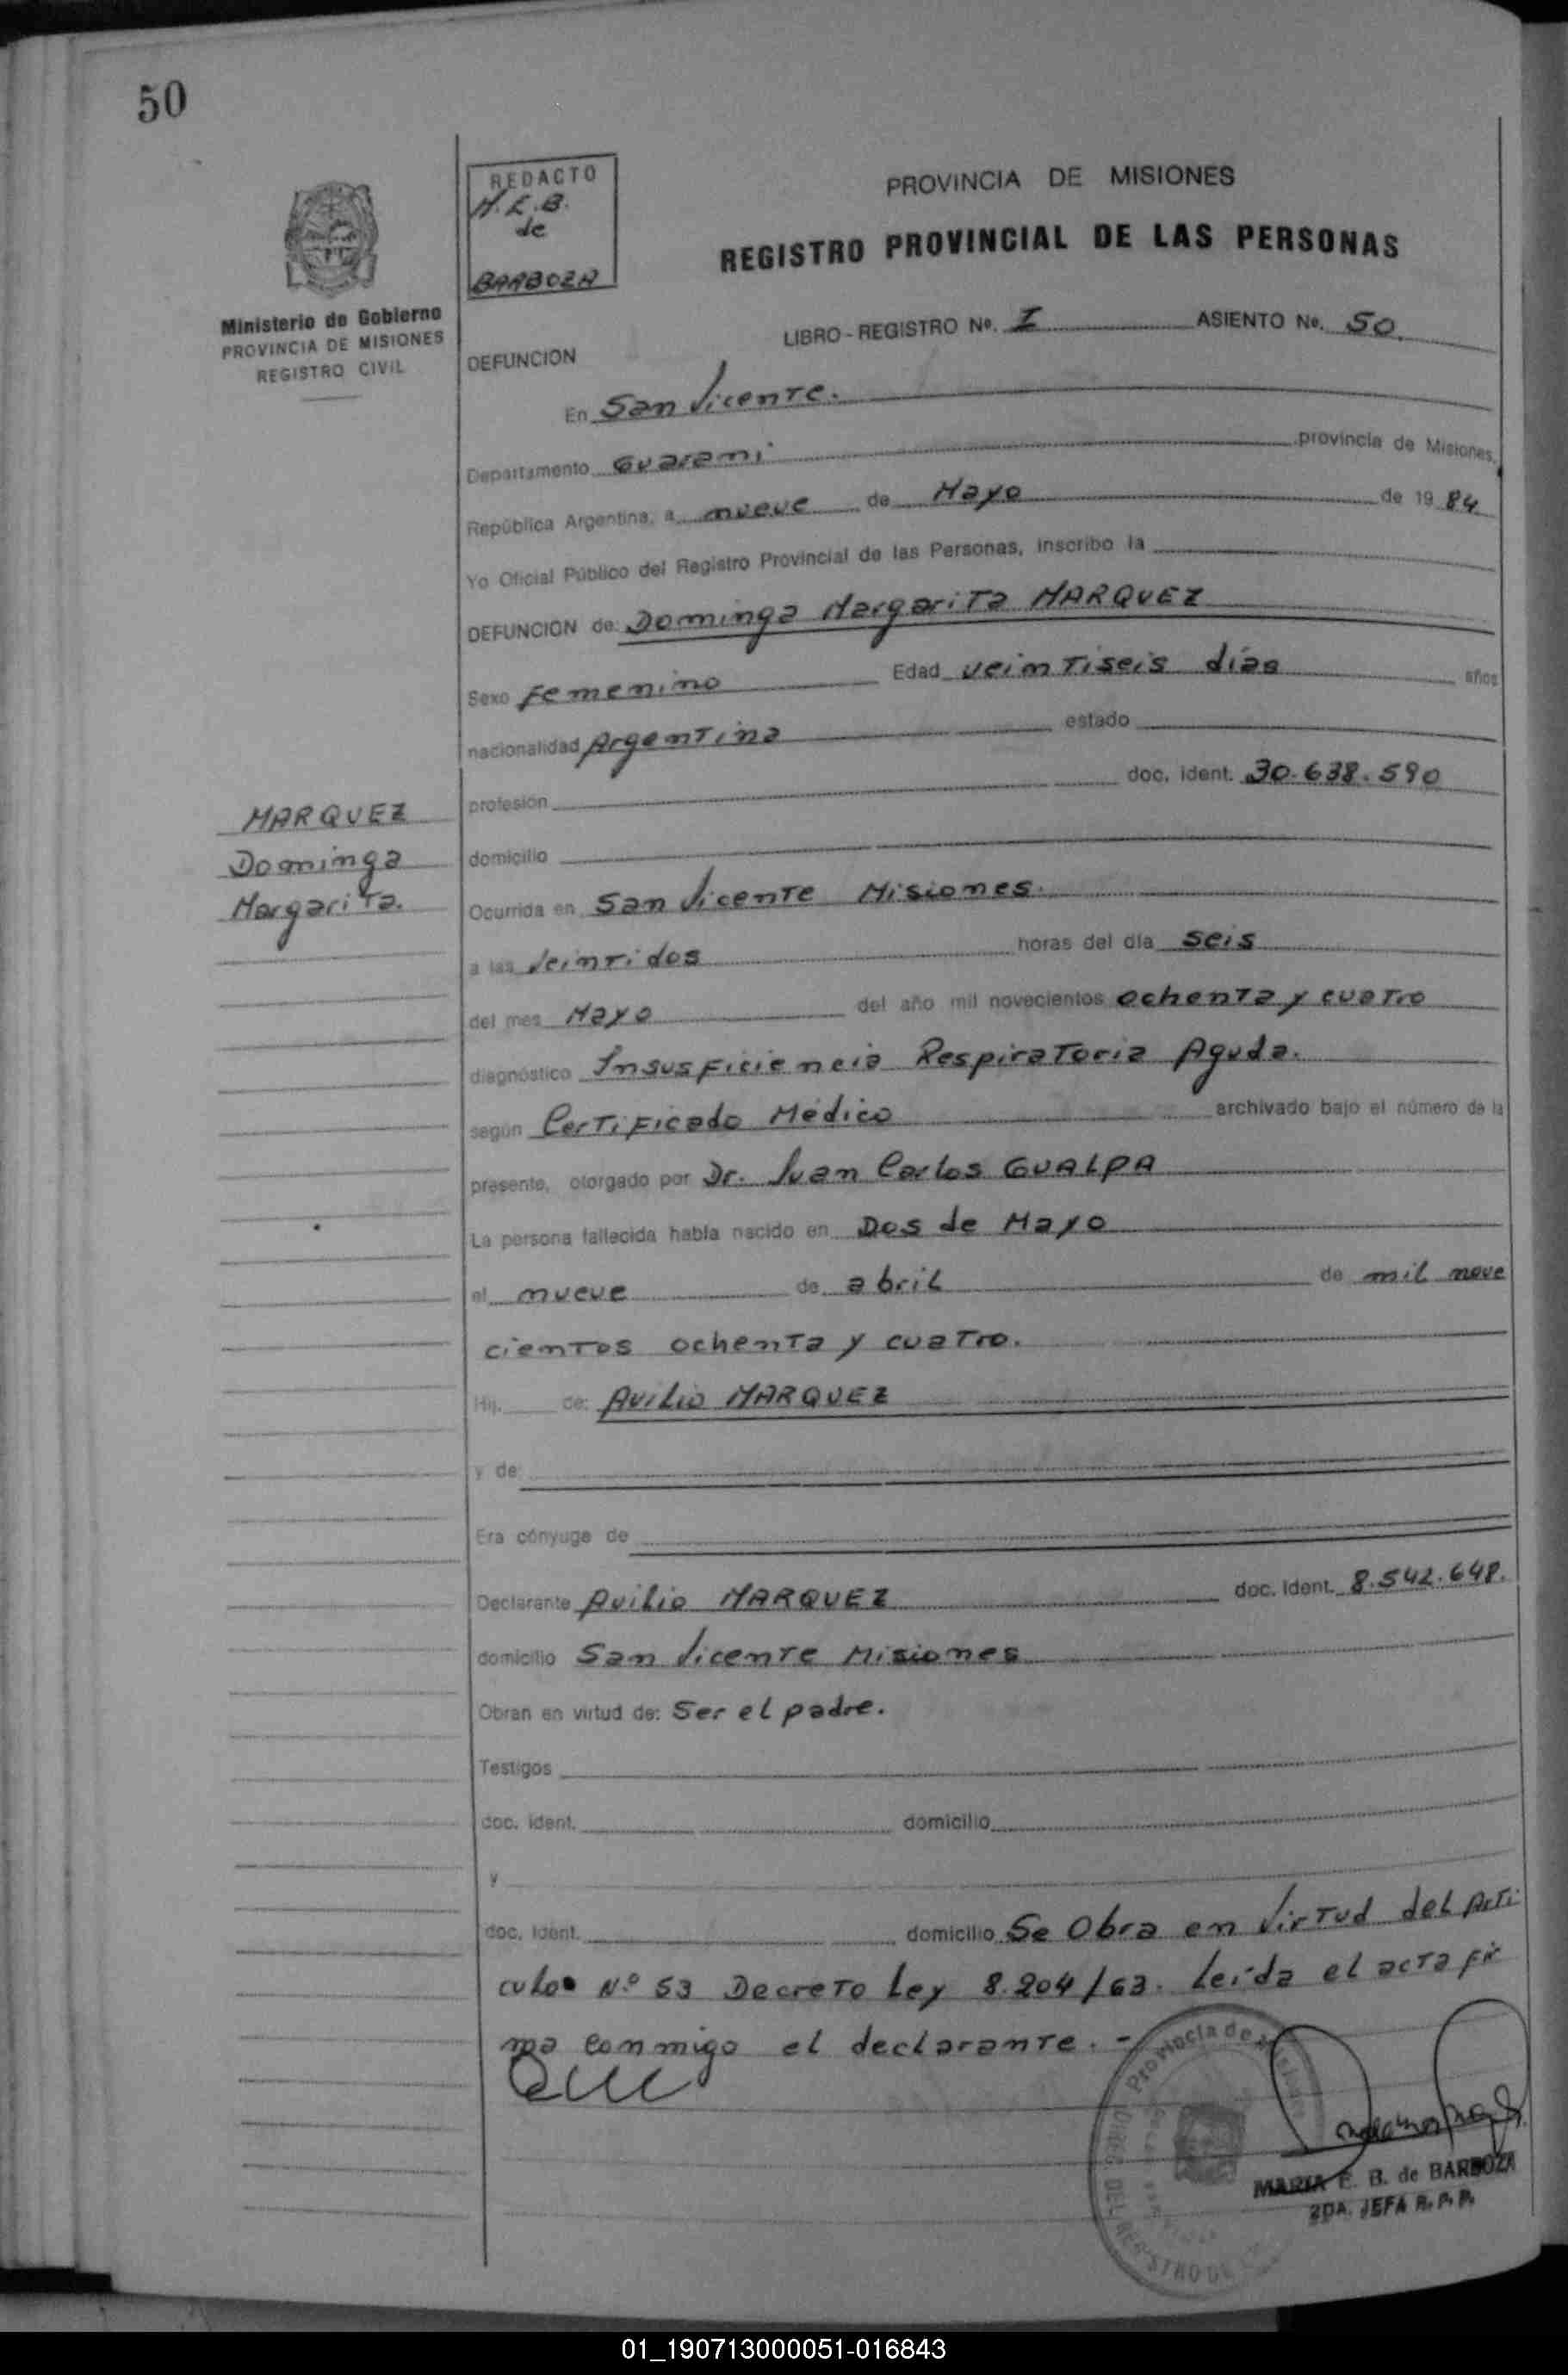 50
REDACTO
M.E.B.
de
BARBOZA
PROVINCIA DE MISIONES
REGISTRO PROVINCIAL DE LAS PERSONAS
Ministerio de Gobierno
PROVINCIA DE MISIONES
REGISTRO CIVIL
LIBRO - REGISTRO No. I ASIENTO No. 50.
DEFUNCION
En San Vicente.
Departamento Guarani provincia de Misiones,
República Argentina, a nueve de Mayo de 1984
Yo Oficial Público del Registro Provincial de las Personas, inscribo la
DEFUNCION de: Dominga Margarita MARQUEZ
Sexo Femenino Edad veintiseis días años
nacionalidad Argentina estado
profesión doc. ident. 30.638.590
MARQUEZ
Dominga
Margarita.
domicilio
Ocurrida en San Vicente Misiones.
a las Veintidos horas del día seis
del mes Mayo del año mil novecientos ochenta y cuatro
diagnóstico Insusficiencia Respiratoria Aguda.
según Certificado Médico archivado bajo el número de la
presente, otorgado por Dr. Juan Carlos GUALPA
La persona fallecida había nacido en Dos de Mayo
el nueve de abril de mil nove
cientos ochenta y cuatro.
Hij. de: Avilio MARQUEZ
y de
Era cónyuge de
Declarante Avilio MARQUEZ doc. ident. 8.542.648.
domicilio San Vicente Misiones
Obran en virtud de: Ser el padre.
Testigos
doc. ident. domicilio
y
doc. ident. domicilio Se Obra en Virtud del Arti
culo Nº 53 Decreto Ley 8.204/63. Leída el acta fir
ma conmigo el declarante. -
Provincia de Misiones
MARIA E. B. de BARBOZA
2DA. JEFA R. P. P.
01_190713000051-016843